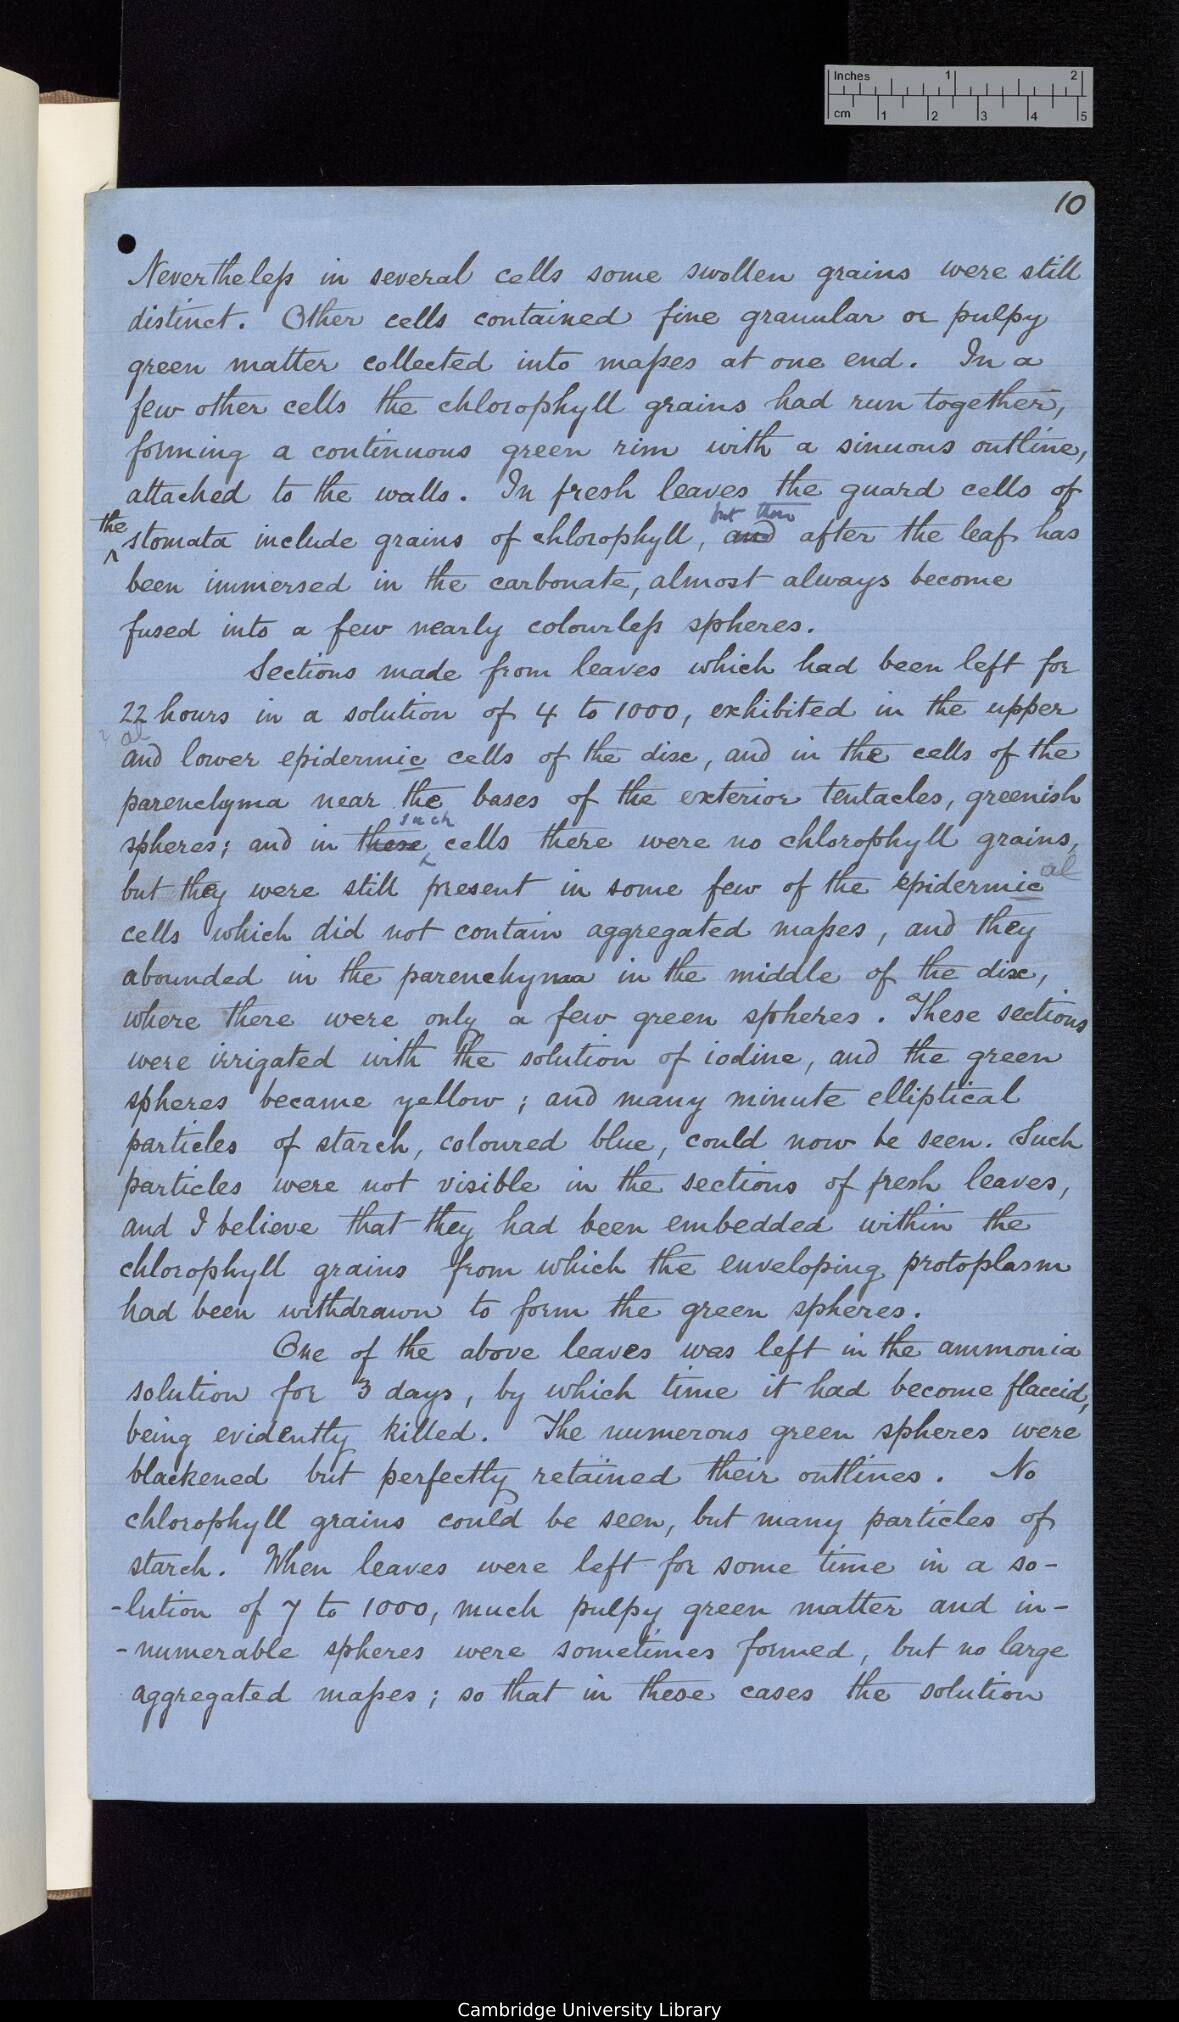 Inches 1 2
cm 1 2 3 4 5
10
Nevertheless in several cells some swollen grains were still
distinct. Other cells contained fine granular or pulpy
green matter collected into masses at one end. In a
few other cells the chlorophyll grains had run together,
forming a continuous green rim with a sinuous outline,
attached to the walls. In fresh leaves the guard cells of
but then
the stomata include grains of chlorophyll, and after the leaf has
been immersed in the carbonate, almost always become
fused into a few nearly colourless spheres.
Sections made from leaves which had been left for
22 hours in a solution of 4 to 1000, exhibited in the upper
? al
and lower epidermic cells of the disc, and in the cells of the
parenchyma near the bases of the exterior tentacles, greenish
such
spheres; and in these cells there were no chlorophyll grains,
al
but they were still present in some few of the epidermic
cells which did not contain aggregated masses, and they
abounded in the parenchyma in the middle of the disc,
where there were only a few green spheres. These sections
were irrigated with the solution of iodine, and the green
spheres became yellow; and many minute elliptical
particles of starch, coloured blue, could now be seen. Such
particles were not visible in the sections of fresh leaves,
and I believe that they had been embedded within the
chlorophyll grains from which the enveloping protoplasm
had been withdrawn to form the green spheres.
One of the above leaves was left in the ammonia
solution for 3 days, by which time it had become flaccid,
being evidently killed. The numerous green spheres were
blackened but perfectly retained their outlines. No
chlorophyll grains could be seen, but many particles of
starch. When leaves were left for some time in a so-
-lution of 7 to 1000, much pulpy green matter and in-
-numerable spheres were sometimes formed, but no large
aggregated masses; so that in these cases the solution
Cambridge University Library